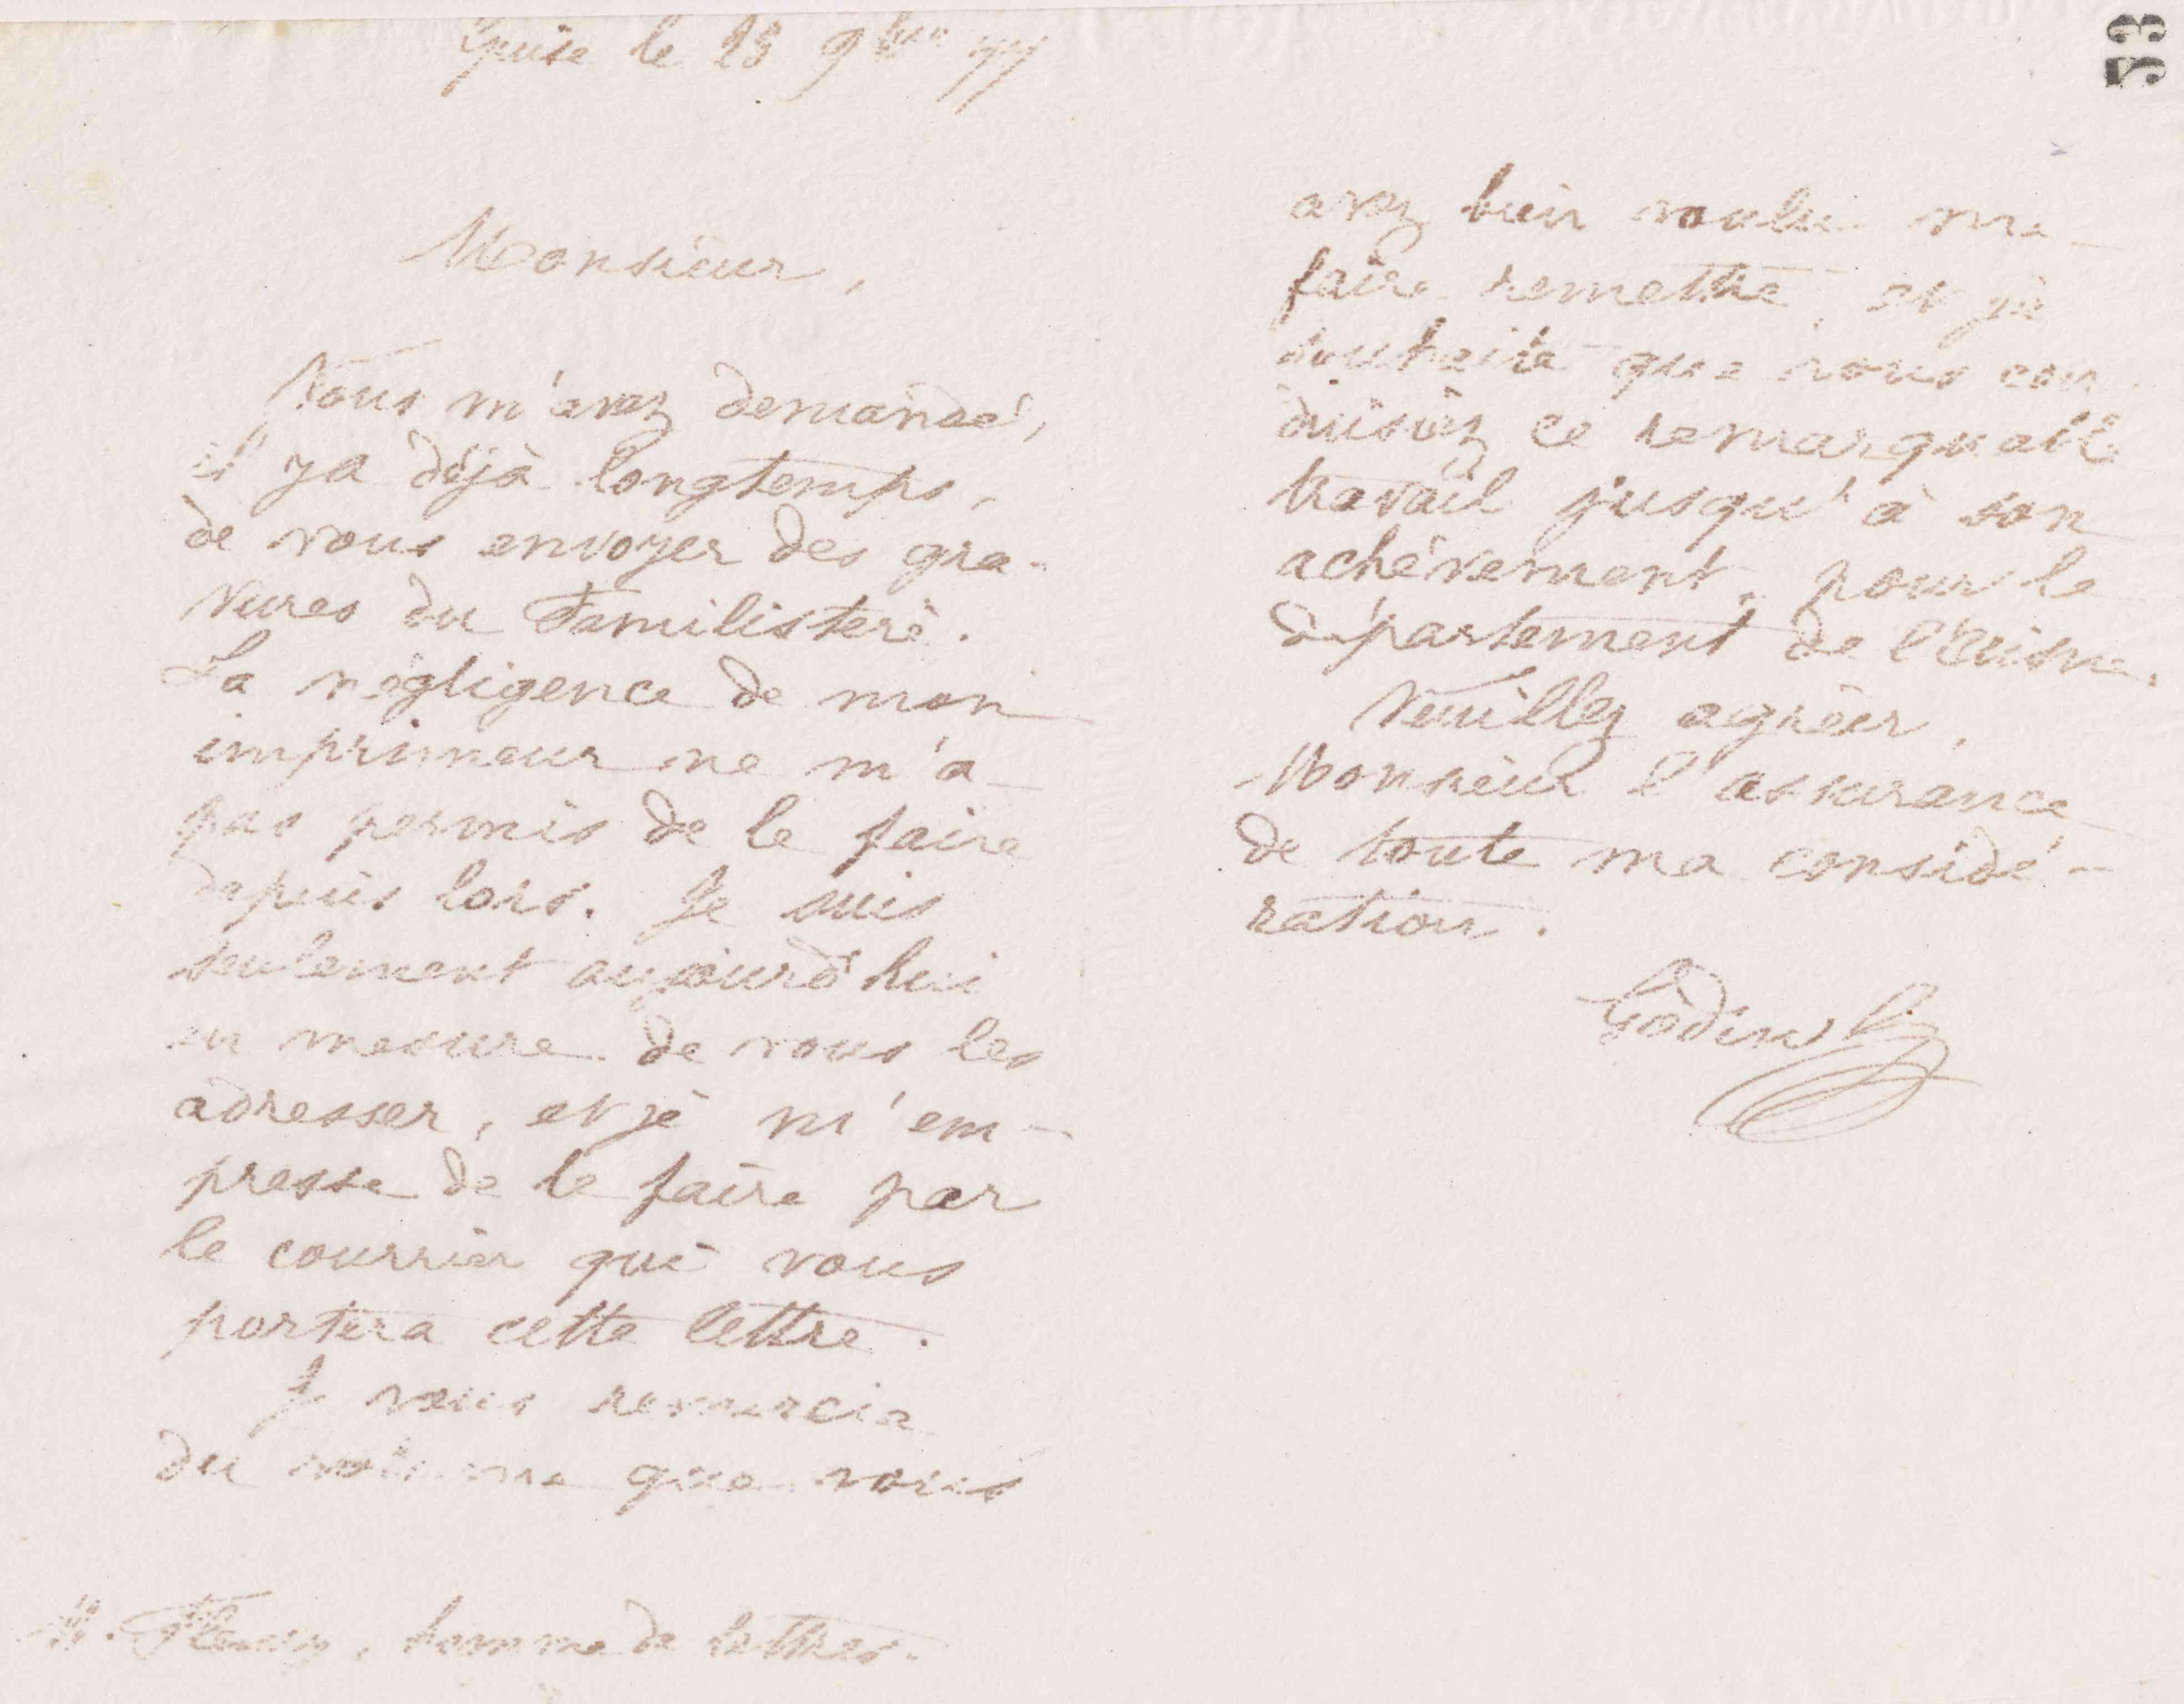 Guise le 28 9bre 77
Monsieur,
Vous m'avez demandé,
il y a déjà longtemps,
de vous envoyer des gra-
vures du Familistère.
La négligence de mon
imprimeur ne m'a
pas permis de le faire
depuis lors. Je suis
seulement aujourd'hui
en mesure de vous les
adresser, et je m'em-
presse de le faire par
le courrier qui vous
portera cette lettre.
Je vous remercie
du volume que vous
M. Fleury, homme de lettres.
53
avez bien voulu me
faire remettre, et je
souhaite que vous con-
duisiez ce remarquable
travail jusqu'à son
achèvement, pour le
département de l'Aisne.
Veuillez agréer,
Monsieur l'assurance
de toute ma considé-
ration.
Godin